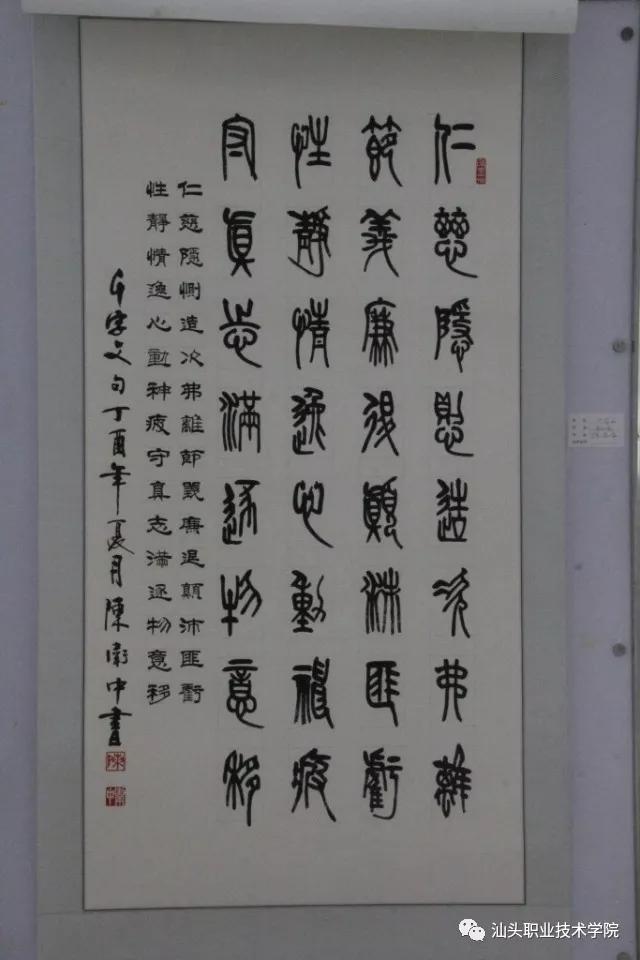 仁慈隱惻造次弗離
節義廉退顛沛匪虧
性靜情逸心動神疲
守真志滿逐物意移
仁慈隱惻造次弗離節義廉退顛沛匪虧
性靜情逸心動神疲守真志滿逐物意移
千字文句丁酉年夏月陳衛中書
汕头职业技术学院